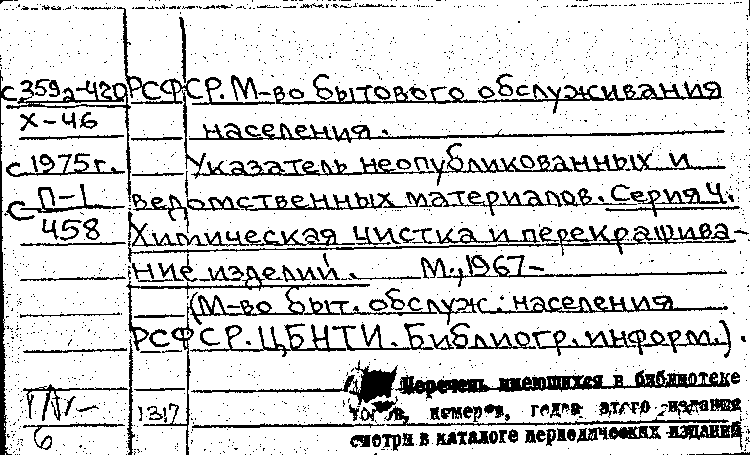 с359а-420 РСФСР. М-во бытового обслуживания
Х-46 населения.
с1975г. Указатель неопубликованных и
с П-1 ведомственных материалов. Серия 4.
458 Химическая чистка и перекрашива-
ние изделий. М., 1967-
(М-во быт. обслуж. населения
РСФСР. ЦБНТИ. Библиогр. информ.).
Перечень имеющихся в библиотеке
1317 томов, номеров, годов этого издания
6 смотри в каталоге периодических изданий